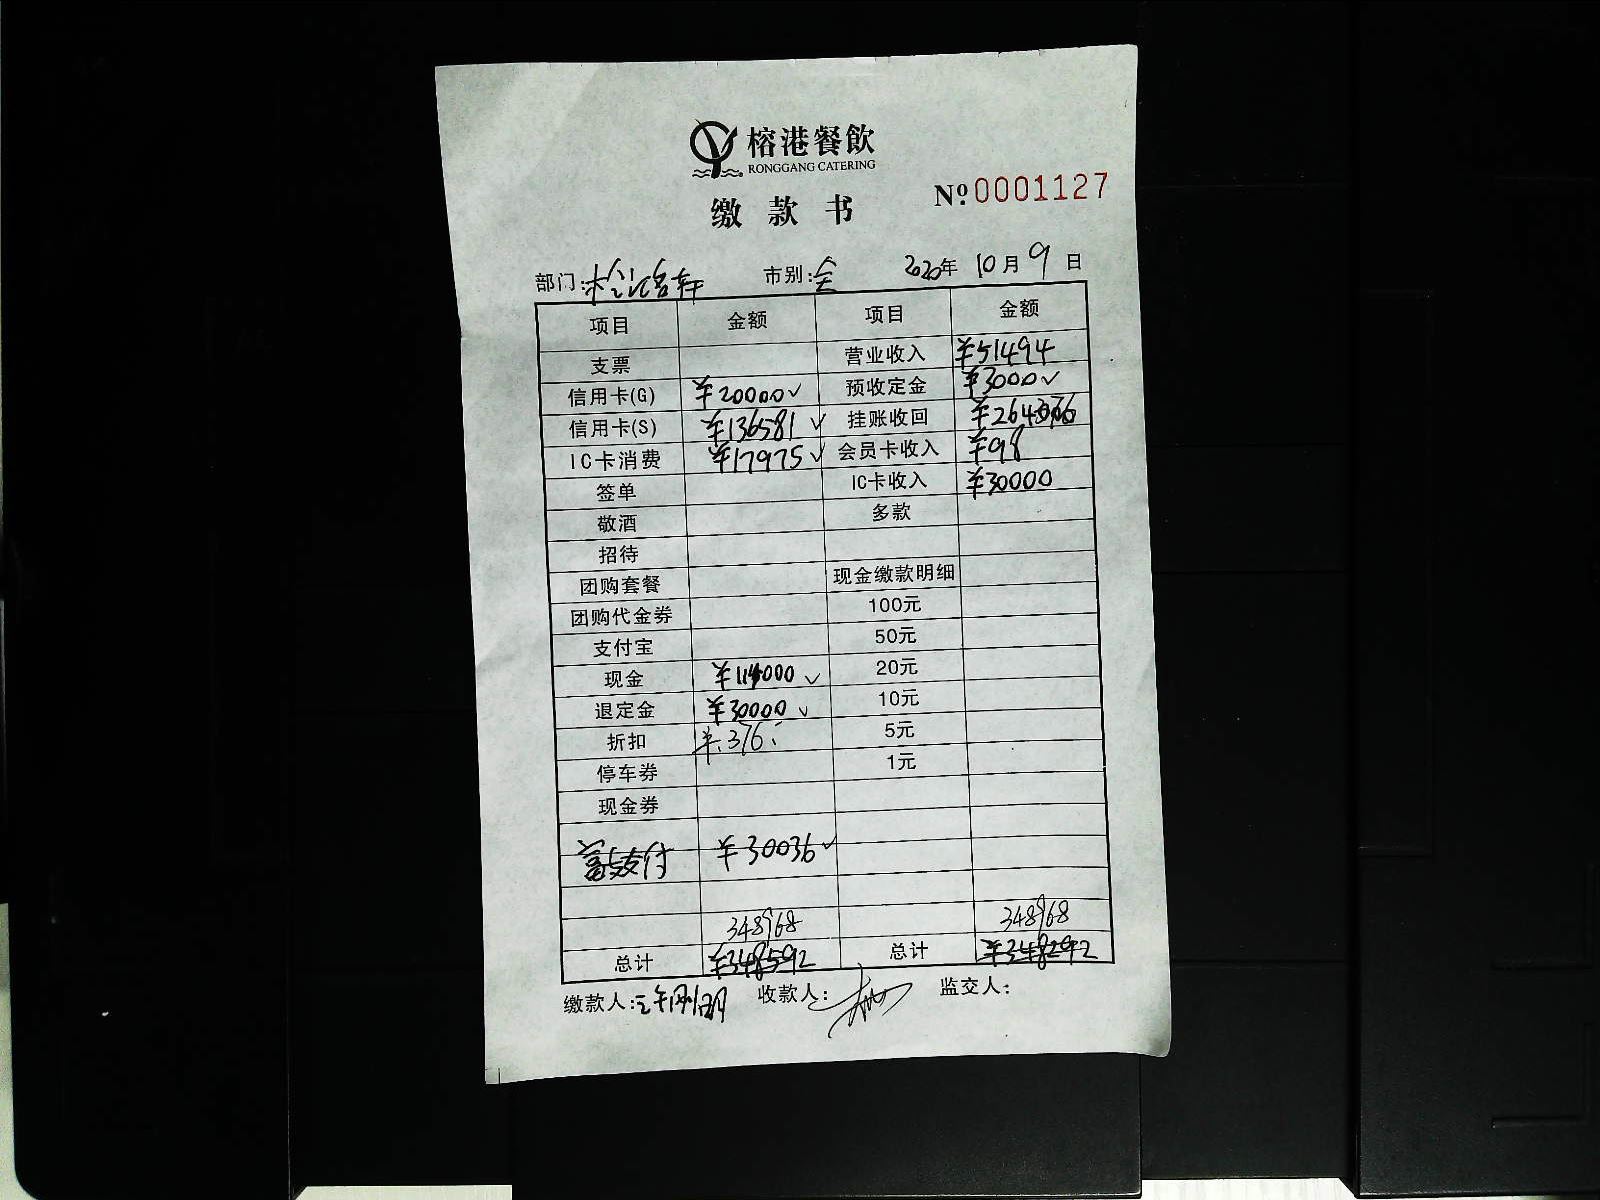 榕港餐飲
RONGGANG CATERING
缴款书
№ 0001127
部门: 市别:全 2020年 10月 9日
项目 金额 项目 金额
支票 营业收入 ¥51494
信用卡(G) ¥20000✓ 预收定金 ¥3000✓
信用卡(S) ¥136581✓ 挂账收回
IC卡消费 ¥17975✓ 会员卡收入 ¥98
签单 IC卡收入 ¥30000
敬酒 多款
招待
团购套餐 现金缴款明细
团购代金券 100元
支付宝 50元
现金 ¥114000✓ 20元
退定金 ¥30000✓ 10元
折扣 ¥376 5元
停车券 1元
现金券
支付 ¥30036✓
348968 348968
总计 ¥348592 总计 ¥348292
缴款人: 收款人: 监交人: